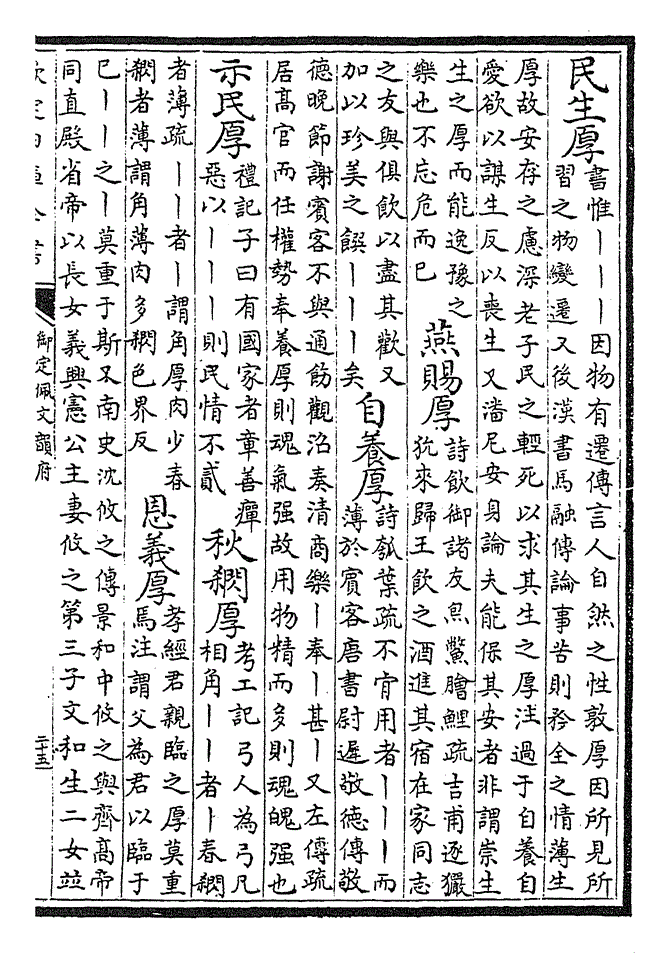 民生厚
書惟丨丨丨因物有遷傳言人自然之性敦厚因所見所
習之物變遷又後漢書馬融傳論事苦則矜全之情薄生
厚故安存之慮深老子民之輕死以求其生之厚注過于自養自
愛欲以謀生反以喪生又潘尼安身論夫能保其安者非謂崇生
生之厚而能逸豫之
樂也不忘危而已
燕賜厚
詩飲御諸友炰鱉膾鯉疏吉甫逐玁
狁來歸王飲之酒進其宿在家同志
之友與俱飲以盡其歡又
加以珍美之饌丨丨丨矣
自養厚
詩瓠葉疏不肯用者丨丨丨而
薄於賓客唐書尉遲敬德傳敬
德晚節謝賓客不與通飭觀沼奏清商樂丨奉丨甚丨又左傳疏
居高官而任權勢奉養厚則魂氣强故用物精而多則魂魄强也
示民厚
禮記子曰有國家者章善癉
惡以丨丨丨則民情不貳
秋閷厚
考工記弓人為弓凡
相角丨丨者丨春閷
者薄疏丨丨者丨謂角厚肉少春
閷者薄謂角薄肉多閷色界反
恩義厚
孝經君親臨之厚莫重
馬注謂父為君以臨于
已丨丨之丨莫重于斯又南史沈攸之傳景和中攸之與齊高帝
同直殿省帝以長女義興憲公主妻攸之第三子文和生二女並
欽定四庫全書
御定佩文韻府
二十五